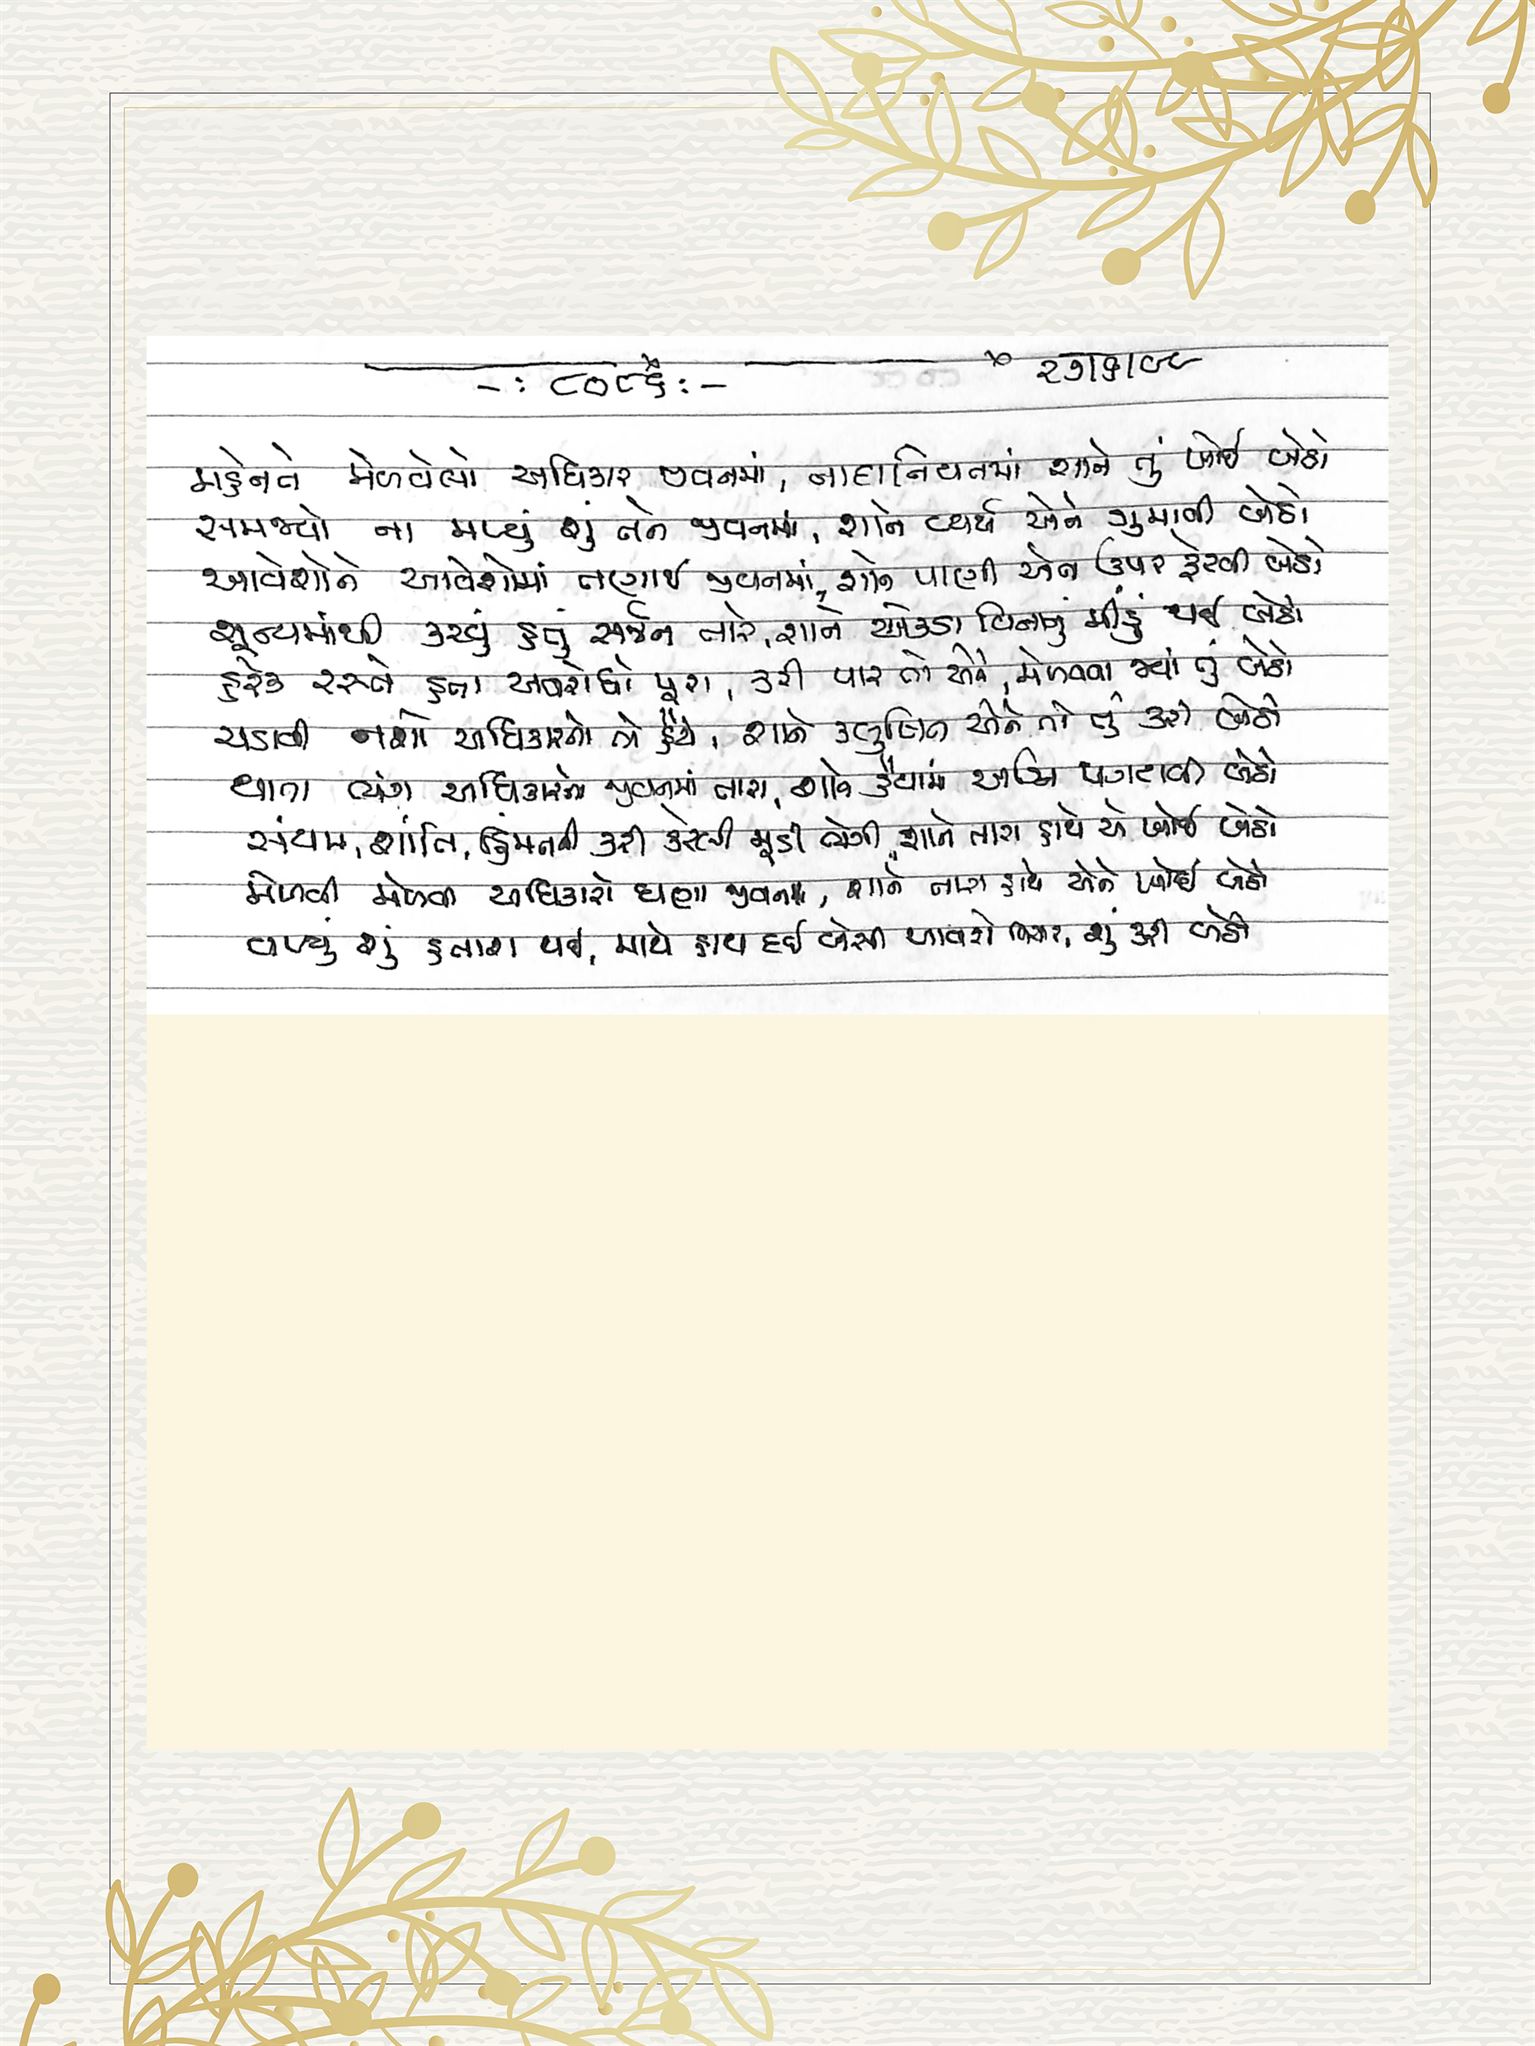 -: ૮૦૮૬ :-
મહેનતે મેળવેલો અધિકાર જીવનમાં, નાદાનિયતમાં શાને તું ખોઈ બેઠો
સમજ્યો ના મળ્યું શું તને જીવનમાં, શાને વ્યર્થ એને ગુમાવી બેઠો
આવેશોને આવેશોમાં તણાઈ જીવનમાં, શાને પાણી એના ઉપર ફેરવી બેઠો
શૂન્યમાંથી કર્યું હતું સર્જન તારે, શાને એકડા વિનાનું મીંડું થઈ બેઠો
હરેક રસ્તે હતા અવરોધો પૂરા, કરી પાર તો એને, મેળવવા જ્યાં તું બેઠો
ચડાવી નશો અધિકારનો તો હૈયે, શાને કલુષિત એને તો તું કરી બેઠો
થાતા ભંગ અધિકારનો જીવનમાં તારા, શાને હૈયામાં અગ્નિ પ્રગટાવી બેઠો
સંયમ, શાંતિ, હિંમતની કરી કરેલી મૂડી ભેગી, શાને તારા હાથે એ ખોઈ બેઠો
મેળવી મેળવી અધિકારો ઘણા જીવનમાં, શાને તારા હાથે એને ખોઈ બેઠો
વળ્યું શું હતાશ થઈ, માથે હાથ દઈ બેસી બાવરો બનીને, શું કરી બેઠો